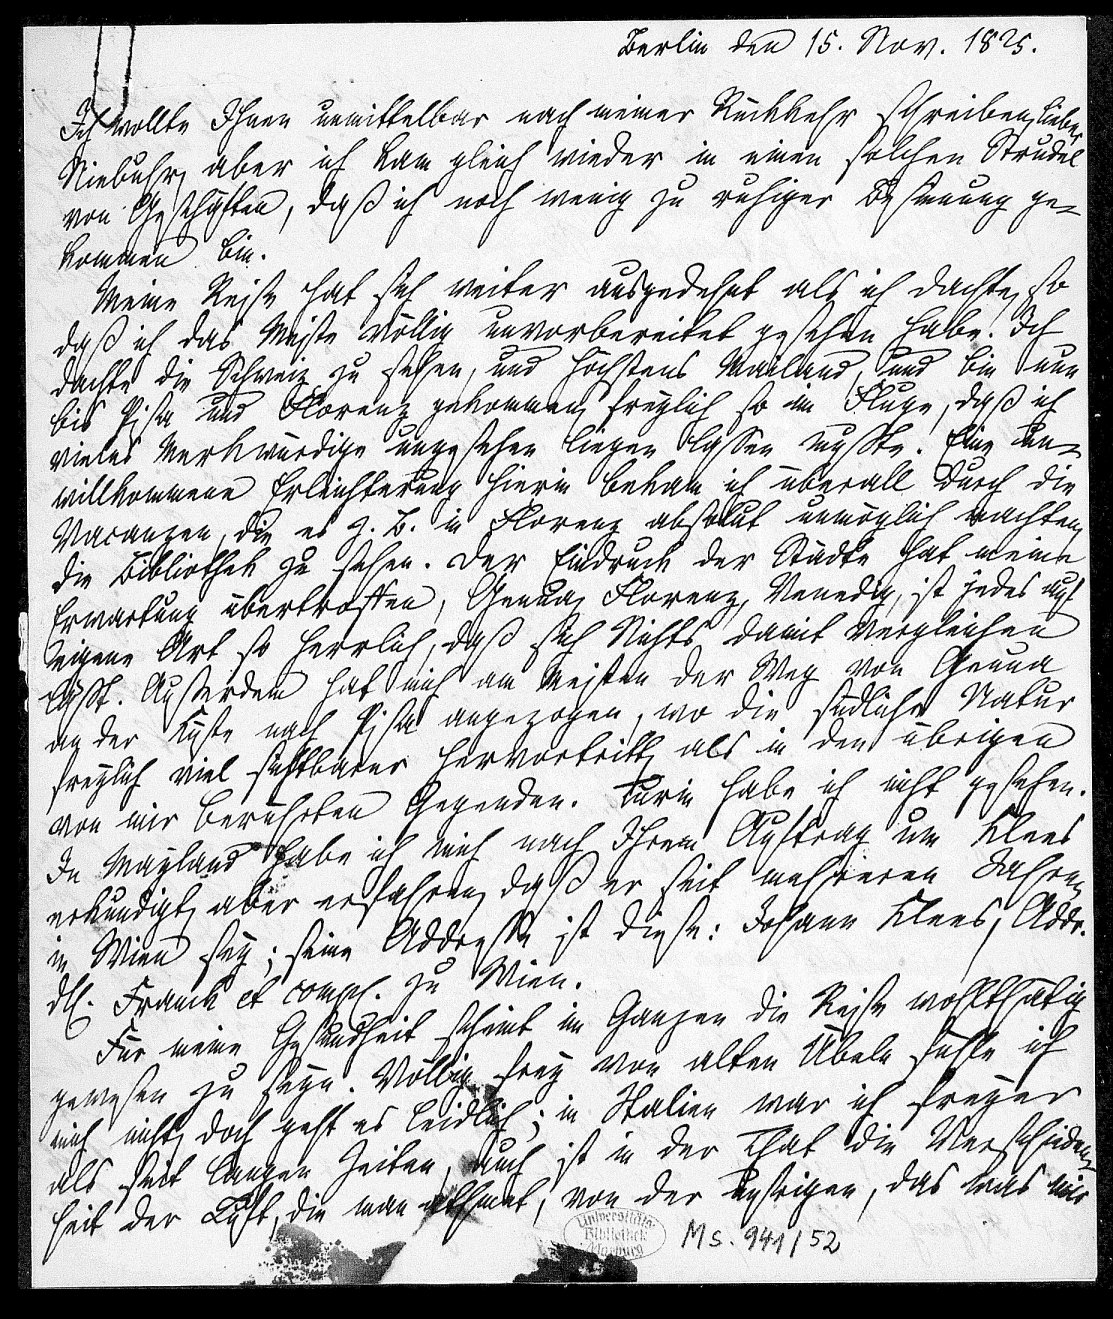 Berlin den 15. Nov. 1825.
Ich wollte Ihnen unmittelbar nach meiner Rückkehr schreiben, lieber
Niebuhr, aber ich kam gleich wieder in einen solchen Strudel
von Geschäften, daß ich noch wenig zu ruhiger Besinnung ge-
kommen bin.
Meine Reise hat sich weiter ausgedehnt als ich dachte, so
daß ich das Meiste völlig unvorbereitet gesehen habe. Ich
dachte die Schweiz zu sehen, und höchstens Mailand, und bin nun
bis Pisa und Florenz gekommen, freylich so im Fluge, daß ich
vieles Merkwürdige ungesehen liegen lassen mußte. Eine un-
willkommene Erleichterung hierin bekam ich überall durch die
Vacanzen, die es z. B. in Florenz absolut unmöglich machten,
die Bibliothek zu sehen. Der Eindruck der Städte hat meine
Erwartung übertroffen, Genua, Florenz, Venedig, ist jedes auf
eigene Art so herrlich, daß sich Nichts damit vergleichen
läßt. Außerdem hat mich am Meisten der Weg von Genua
an der Küste nach Pisa angezogen, wo die südliche Natur
freylich viel sichtbarer hervortritt, als in den übrigen
von mir berührten Gegenden. Turin habe ich nicht gesehen.
In Mayland habe ich mich nach Ihrem Auftrag um Klees
erkundigt, aber erfahren, daß er seit mehreren Jahren
in Wien sey; seine Addresse ist diese: Johann Klees, Addr.
dH. Franck et comp. zu Wien.
Für meine Gesundheit scheint im Ganzen die Reise wohlthätig
gewesen zu seyn. Völlig frey von alten Übeln fühle ich
mich nicht, doch geht es leidlich; in Italien war ich freyer
als seit langen Zeiten, auch ist in der That die Verschieden-
heit der Luft, die man athmet, von der unsrigen, das was mir
Universitäts-
Bibliothek
Marburg
Ms. 941/52